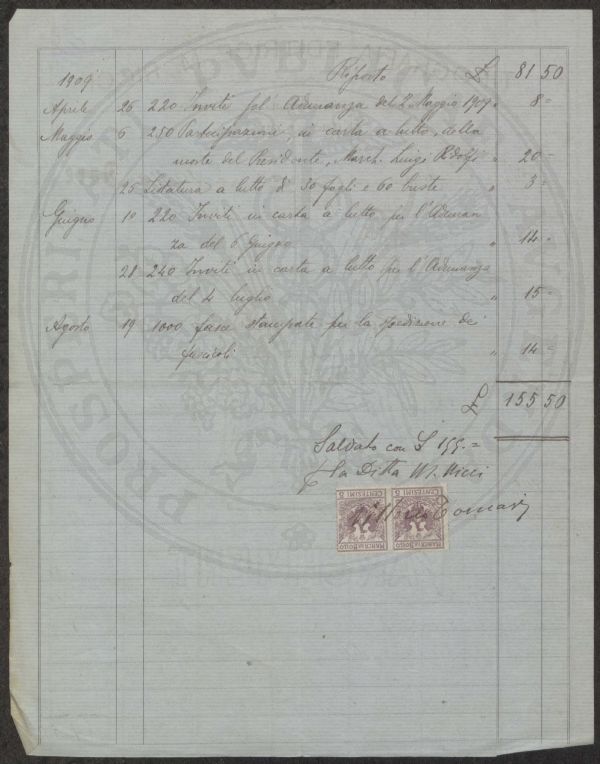 1909 Riporto £ 81 50
Aprile 26 220 Inviti pel' Adunanza del 2 Maggio 1909 " 8 =
Maggio 6 250 Partecipazioni, in carta a lutto, della
morte del Presidente, March. Luigi Ridolfi " 20 =
25 Listatura a lutto di 30 fogli e 60 buste " 3 =
Giugno 10 220 Inviti in carta a lutto per l'Adunan
za del 6 Giugno " 14 =
28 240 Inviti in carta a lutto per l'Adunanza
del 4 luglio " 15 =
Agosto 19 1000 fasce stampate per la spedizione dei
fascicoli " 14 =
£ 155 50
Saldato con £ 155.=
p la Ditta M. Ricci
MARCA da BOLLO
CENTESIMI 5
MARCA da BOLLO
CENTESIMI 5